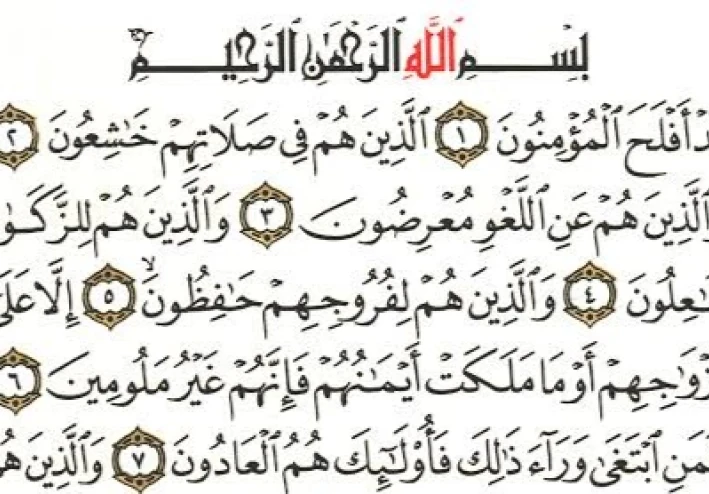 بِسْمِ ٱللَّهِ ٱلرَّحْمَٰنِ ٱلرَّحِيمِ
دْ أَفْلَحَ ٱلْمُؤْمِنُونَ ١ ٱلَّذِينَ هُمْ فِى صَلَاتِهِمْ خَٰشِعُونَ ٢
وَٱلَّذِينَ هُمْ عَنِ ٱللَّغْوِ مُعْرِضُونَ ٣ وَٱلَّذِينَ هُمْ لِلزَّكَوٰ
َٰعِلُونَ ٤ وَٱلَّذِينَ هُمْ لِفُرُوجِهِمْ حَٰفِظُونَ ٥ إِلَّا عَلَىٰ
زْوَٰجِهِمْ أَوْ مَا مَلَكَتْ أَيْمَٰنُهُمْ فَإِنَّهُمْ غَيْرُ مَلُومِينَ ٦
مَنِ ٱبْتَغَىٰ وَرَآءَ ذَٰلِكَ فَأُو۟لَٰٓئِكَ هُمُ ٱلْعَادُونَ ٧ وَٱلَّذِينَ هُ